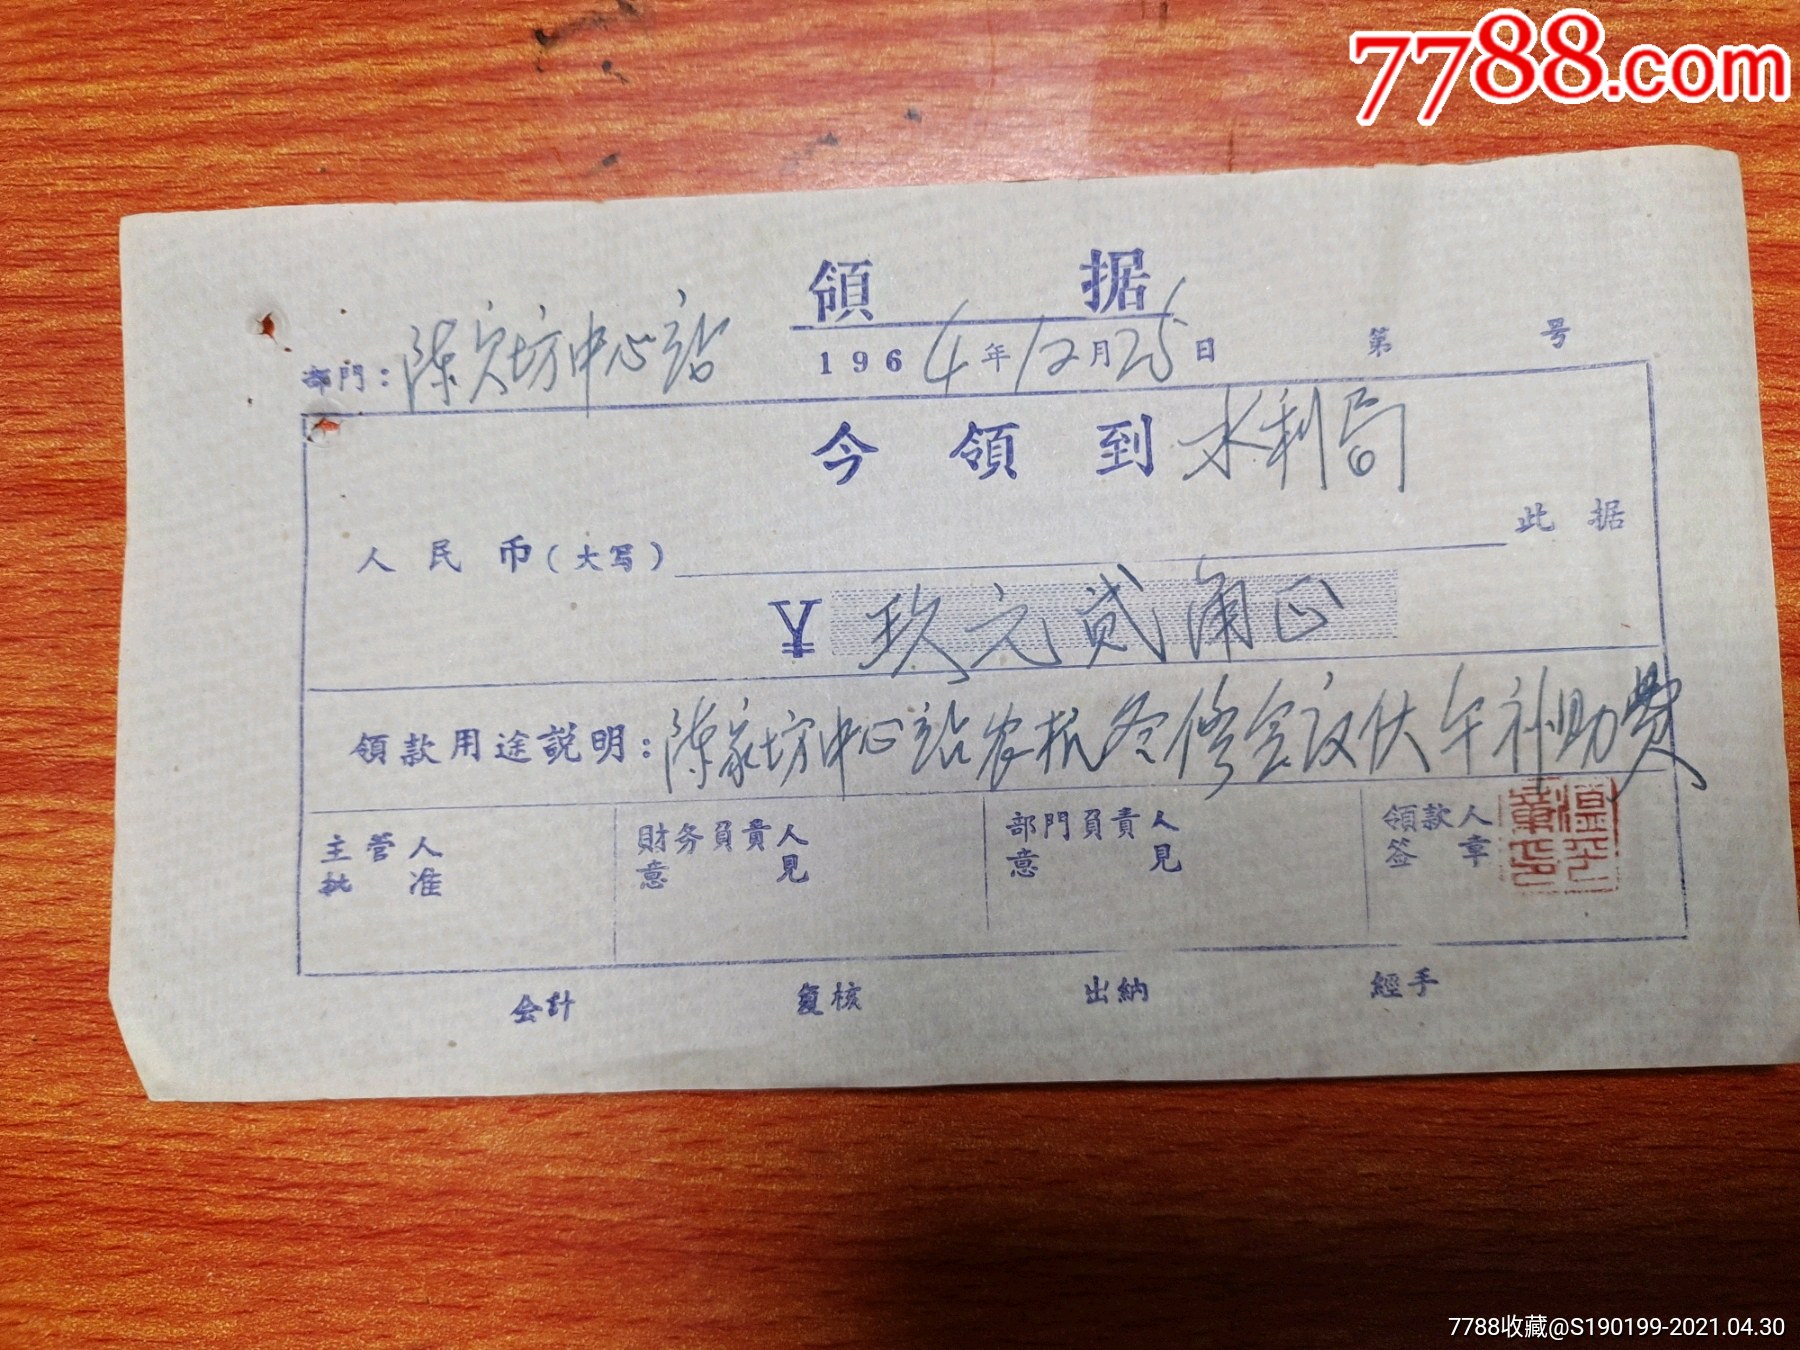 7788.com
領 据
部門：陈家坊中心站 1964年12月25日 第 号
今領到水利局
人民币（大写） 此据
¥ 玖元贰角正
領款用途説明：陈家坊中心站农机冬修会议伙午补助费
主管人批准 財务負責人意見 部門負責人意見 領款人签章
会計 复核 出納 經手
7788收藏@S190199-2021.04.30